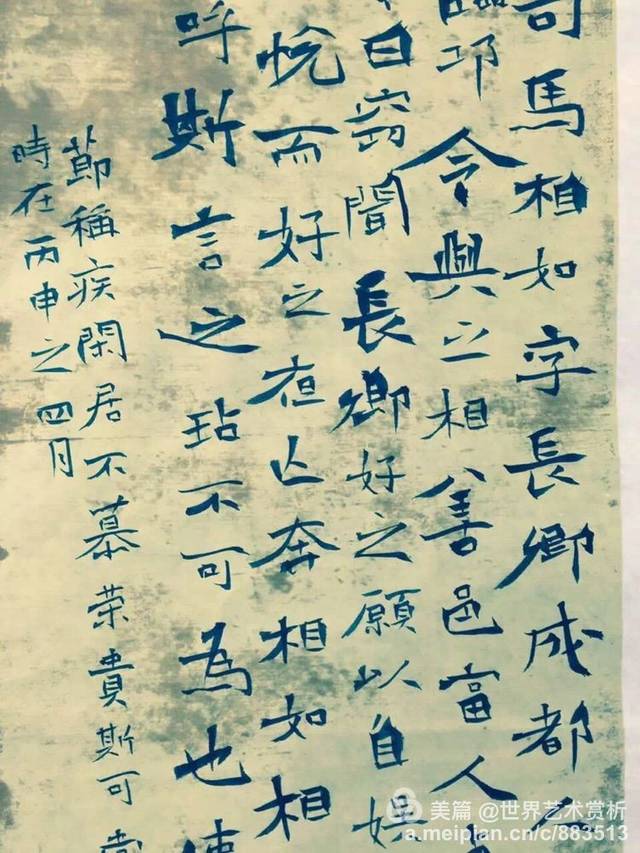 司馬相如字長卿成都
臨邛令與之相善邑富人
曰窃聞長卿好之願以自娱
悅而好之夜亡奔相如相
呼斯言之玷不可為也使
節稱疾閑居不慕荣貴斯可
時在丙申之四月
美篇 @世界艺术赏析
a.meipian.cn/c/883513